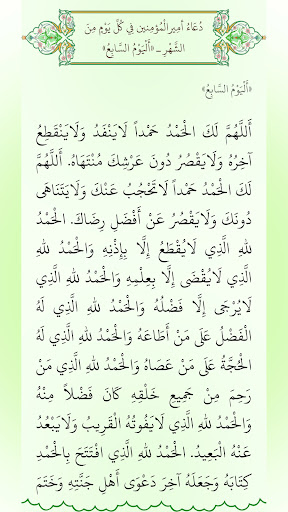 دُعَاءُ أمِيرالْمُؤمِنين فِي كُلِّ يَوْمٍ مِنَ
الشَّهْرِ ـ «أَلْيَوْمُ السَّابِعُ»
«أَلْيَوْمُ السَّابِعُ»
أَللَّهُمَّ لَكَ الْحَمْدُ حَمْداً لَايَنْفَدُ وَلَايَنْقَطِعُ
آخِرُهُ وَلَايَقْصُرُ دُونَ عَرْشِكَ مُنْتَهَاهُ. أَللَّهُمَّ
لَكَ الْحَمْدُ حَمْداً لَاتَحْجُبُ عَنْكَ وَلَايَتَنَاهَى
دُونَكَ وَلَايَقْصُرُ عَنْ أَفْضَلِ رِضَاكَ. الْحَمْدُ
للهِ الَّذِي لَايُقْطَعُ إِلَّا بِإِذْنِهِ وَالْحَمْدُ للهِ
الَّذِي لَايُقْضَى إِلَّا بِعِلْمِهِ وَالْحَمْدُ للهِ الَّذِي
لَايُرْجَى إِلَّا فَضْلُهُ وَالْحَمْدُ للهِ الَّذِي لَهُ
الْفَضْلُ عَلَى مَنْ أَطَاعَهُ وَالْحَمْدُ للهِ الَّذِي لَهُ
الْحُجَّةُ عَلَى مَنْ عَصَاهُ وَالْحَمْدُ للهِ الَّذِي مَنْ
رَحِمَ مِنْ جَمِيعِ خَلْقِهِ كَانَ فَضْلاً مِنْهُ
وَالْحَمْدُ للهِ الَّذِي لَايَفُوتُهُ الْقَرِيبُ وَلَايَبْعُدُ
عَنْهُ الْبَعِيدُ. الْحَمْدُ للهِ الَّذِي افْتَتَحَ بِالْحَمْدِ
كِتَابَهُ وَجَعَلَهُ آخِرَ دَعْوَى أَهْلِ جَنَّتِهِ وَخَتَمَ